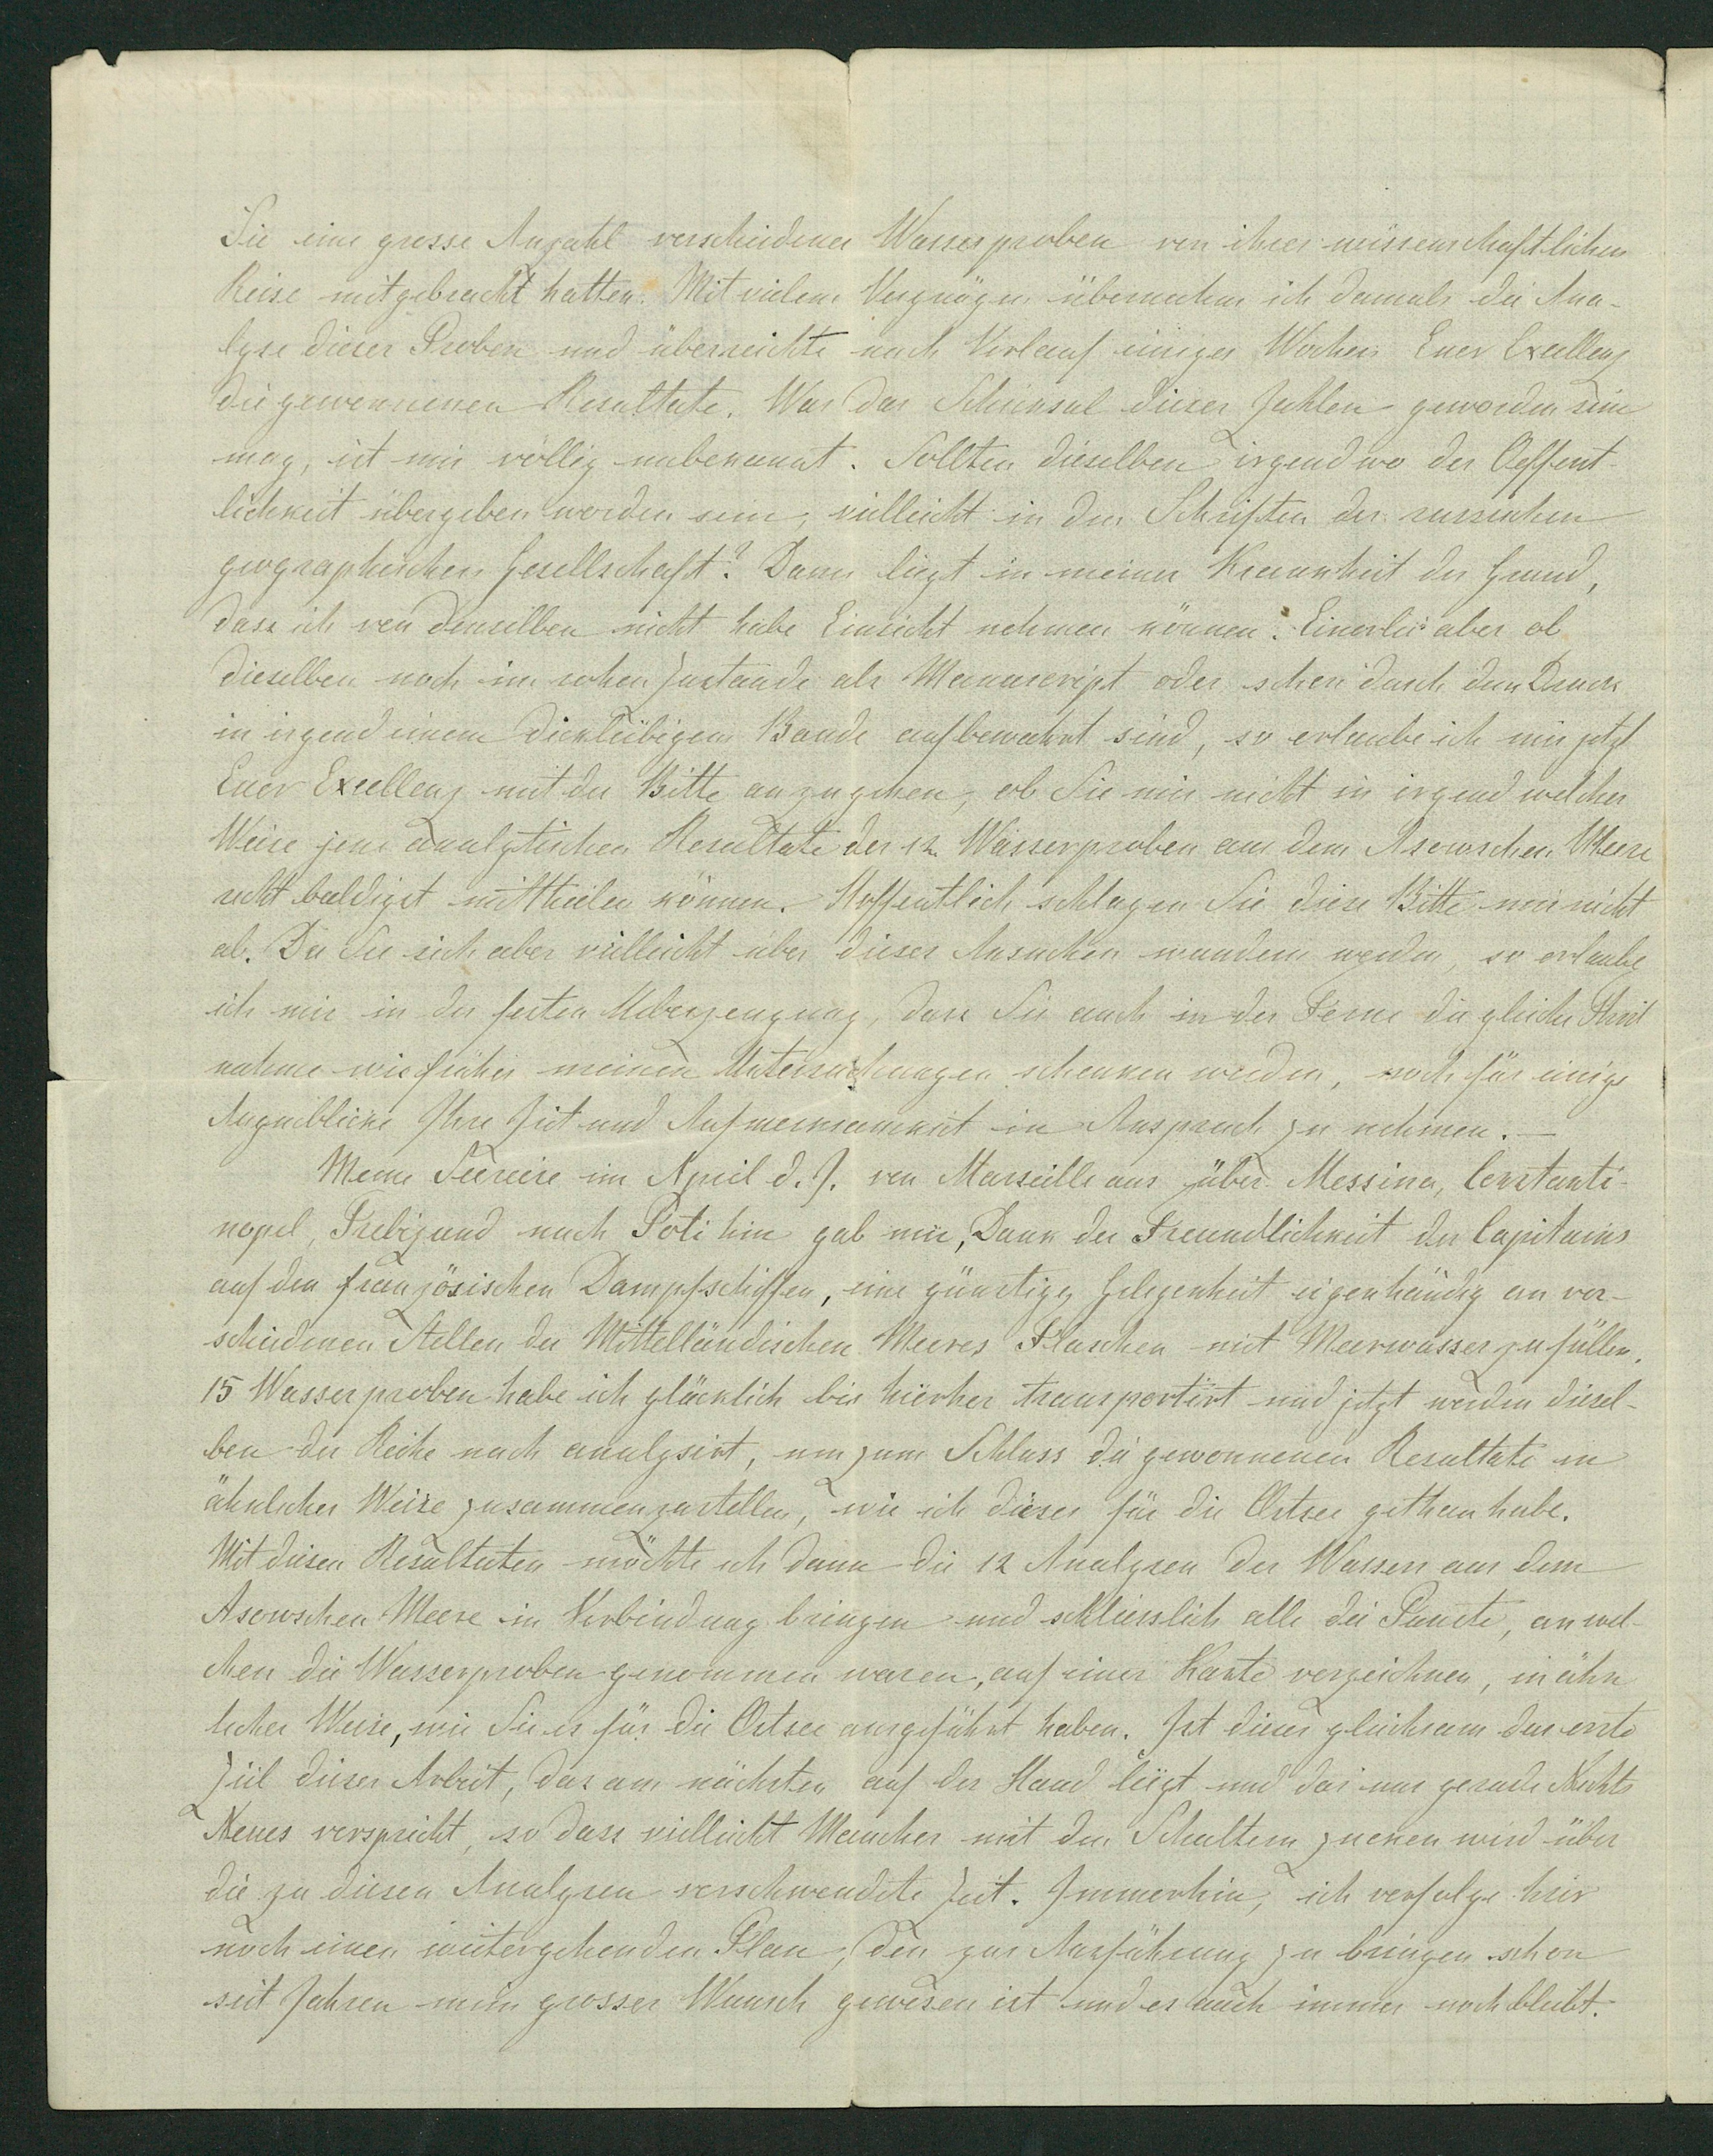 Sie eine grosse Anzahl verschiedener Wasserproben von ihrer wissenschaftlichen
Reise mitgebracht hatten. Mit vielem Vergnügen übernahm ich damals die Ana-
lyse dieser Proben und überreichte nach Verlauf einiger Wochen Euer Excellenz
die gewonnenen Resultate. Was das Schicksal dieser Zahlen geworden sein
mag, ist mir völlig unbekannt. Sollten dieselben irgendwo der Oeffent-
lichkeit übergeben worden sein, vielleicht in den Schriften der russischen
geographischen Gesellschaft? Dann liegt in meiner Krankheit der Grund,
dass ich von denselben nicht habe Einsicht nehmen können. Einerlei aber ob
dieselben noch im rohen Zustande als Manuscript oder schon durch den Druck
in irgend einem dickleibigen Bande aufbewahrt sind, so erlaube ich mir jetzt
Euer Excellenz mit der Bitte anzugehen, ob Sie mir nicht in irgend welcher
Weise jene analytischen Resultate der 12 Wasserproben aus dem Asowschen Meere
recht baldigst mittheilen können. Hoffentlich schlagen Sie diese Bitte mir nicht
ab. Da Sie sich aber vielleicht über dieses Ansuchen wundern werden, so erlaube
ich mir in der festen Ueberzeugung, dass Sie auch in der Ferne die gleiche Theil
nahme wie früher meinen Untersuchungen schenken werden, noch für einige
Augenblicke Ihre Zeit und Aufmerksamkeit in Anspruch zu nehmen. —
Meine Seereise im April d. J. von Marseille aus über Messina, Constanti-
nopel, Trebizund nach Poti hin gab mir, Dank der Freundlichkeit der Capitains
auf den französischen Dampfschiffen, eine günstige Gelegenheit eigenhändig an ver-
schiedenen Stellen des Mittelländischen Meeres Flaschen mit Meerwasser zu füllen.
15 Wasserproben habe ich glücklich bis hierher transportirt und jetzt werden diesel-
ben der Reihe nach analysirt, um zum Schluss die gewonnenen Resultate in
ähnlicher Weise zusammenzustellen, wie ich dieses für die Ostsee gethan habe.
Mit diesen Resultaten möchte ich dann die 12 Analysen des Wassers aus dem
Asowschen Meere in Verbindung bringen und schliesslich alle die Puncte, an wel-
chen die Wasserproben genommen waren, auf einer Karte verzeichnen, in ähn
licher Weise, wie Sie es für die Ostsee ausgeführt haben. Ist dieses gleichsam das erste
Ziel dieser Arbeit, das am nächsten auf der Hand liegt und das nun gerade Nichts
Neues verspricht, so dass vielleicht Mancher mit den Schultern zucken wird über
die zu diesen Analysen verschwendete Zeit. Immerhin, ich verfolge hier
noch einen weitergehenden Plan, den zur Ausführung zu bringen schon
seit Jahren mein grosser Wunsch gewesen ist und es auch immer noch bleibt.